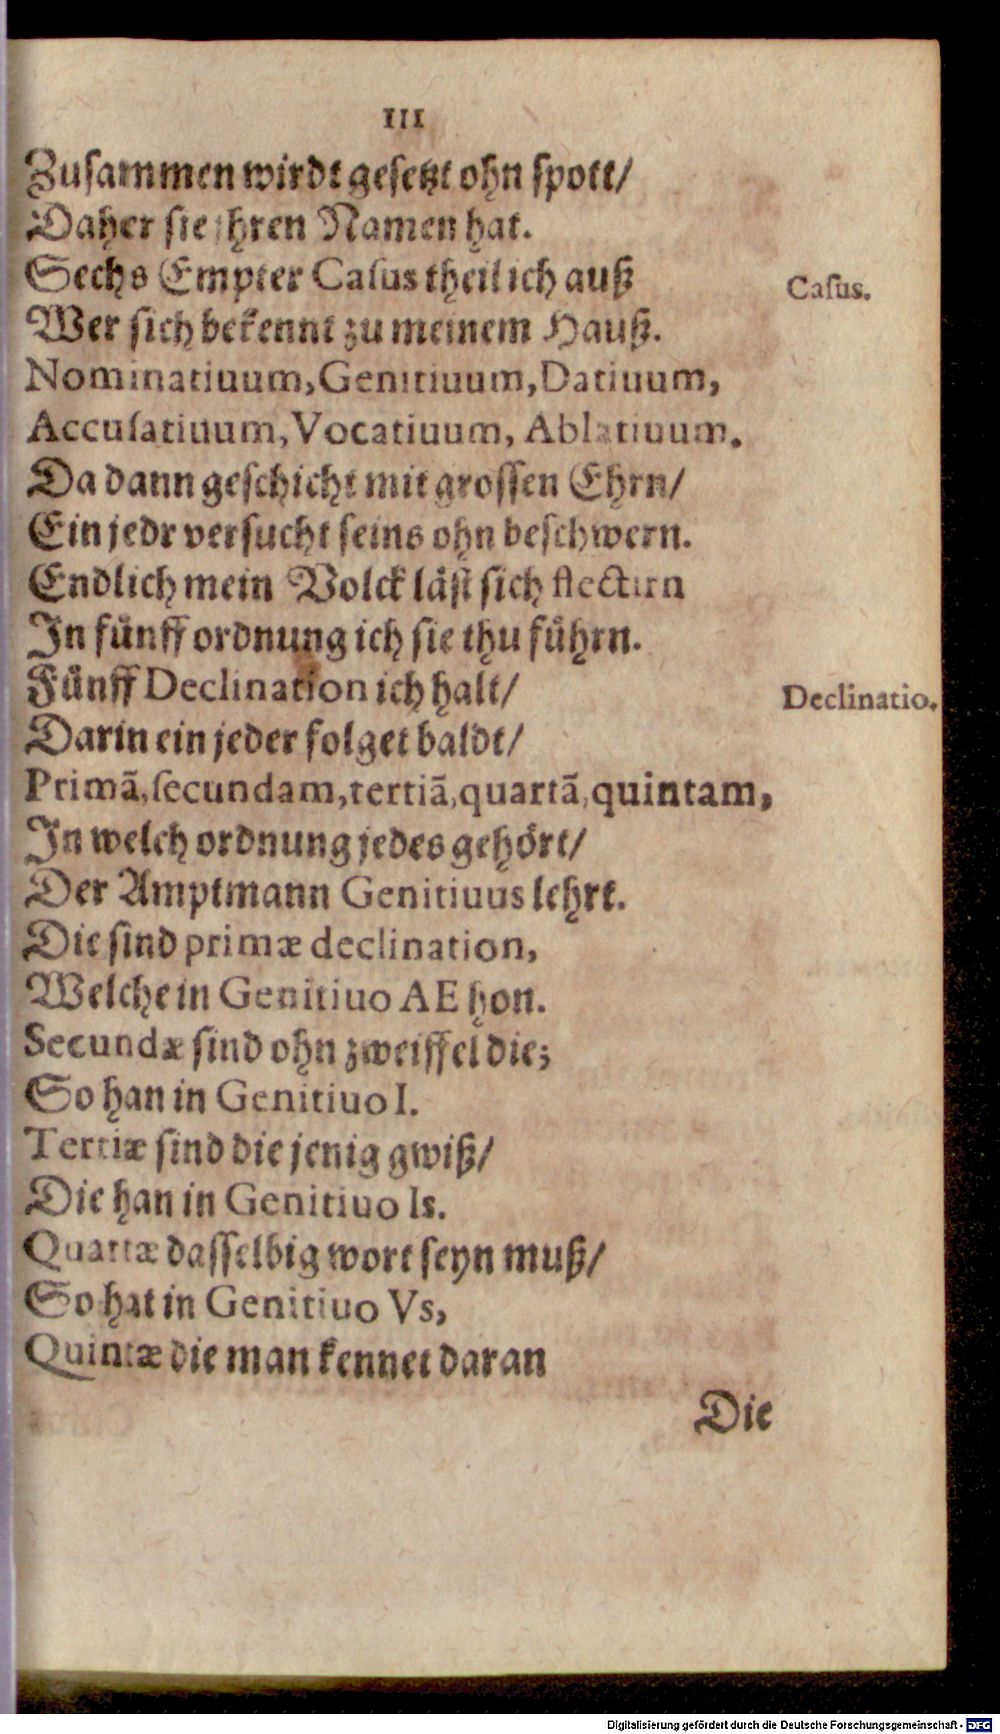 111
Zusammen wirdt gesetzt ohn spott/
Daher sie ihren Namen hat.
Sechs Empter Casus theil ich auß
Casus.
Wer sich bekennt zu meinem Hauß.
Nominatiuum, Genitiuum, Datiuum,
Accusatiuum, Vocatiuum, Ablatiuum.
Da dann geschicht mit grossen Ehrn/
Ein jedr versucht seins ohn beschwern.
Endlich mein Volck läst sich flectirn
In fünff ordnung ich sie thu führn.
Fünff Declination ich halt/
Declinatio.
Darin ein jeder folget baldt/
Primã, secundam, tertiã, quartã, quintam,
In welch ordnung jedes gehört/
Der Amptmann Genitiuus lehrt.
Die sind primæ declination,
Welche in Genitiuo AE hon.
Secundæ sind ohn zweiffel die;
So han in Genitiuo I.
Tertiæ sind die jenig gwiß/
Die han in Genitiuo Is.
Quartæ dasselbig wort seyn muß/
So hat in Genitiuo Vs,
Quintæ die man kennet daran
Die
Digitalisierung gefördert durch die Deutsche Forschungsgemeinschaft - DFG